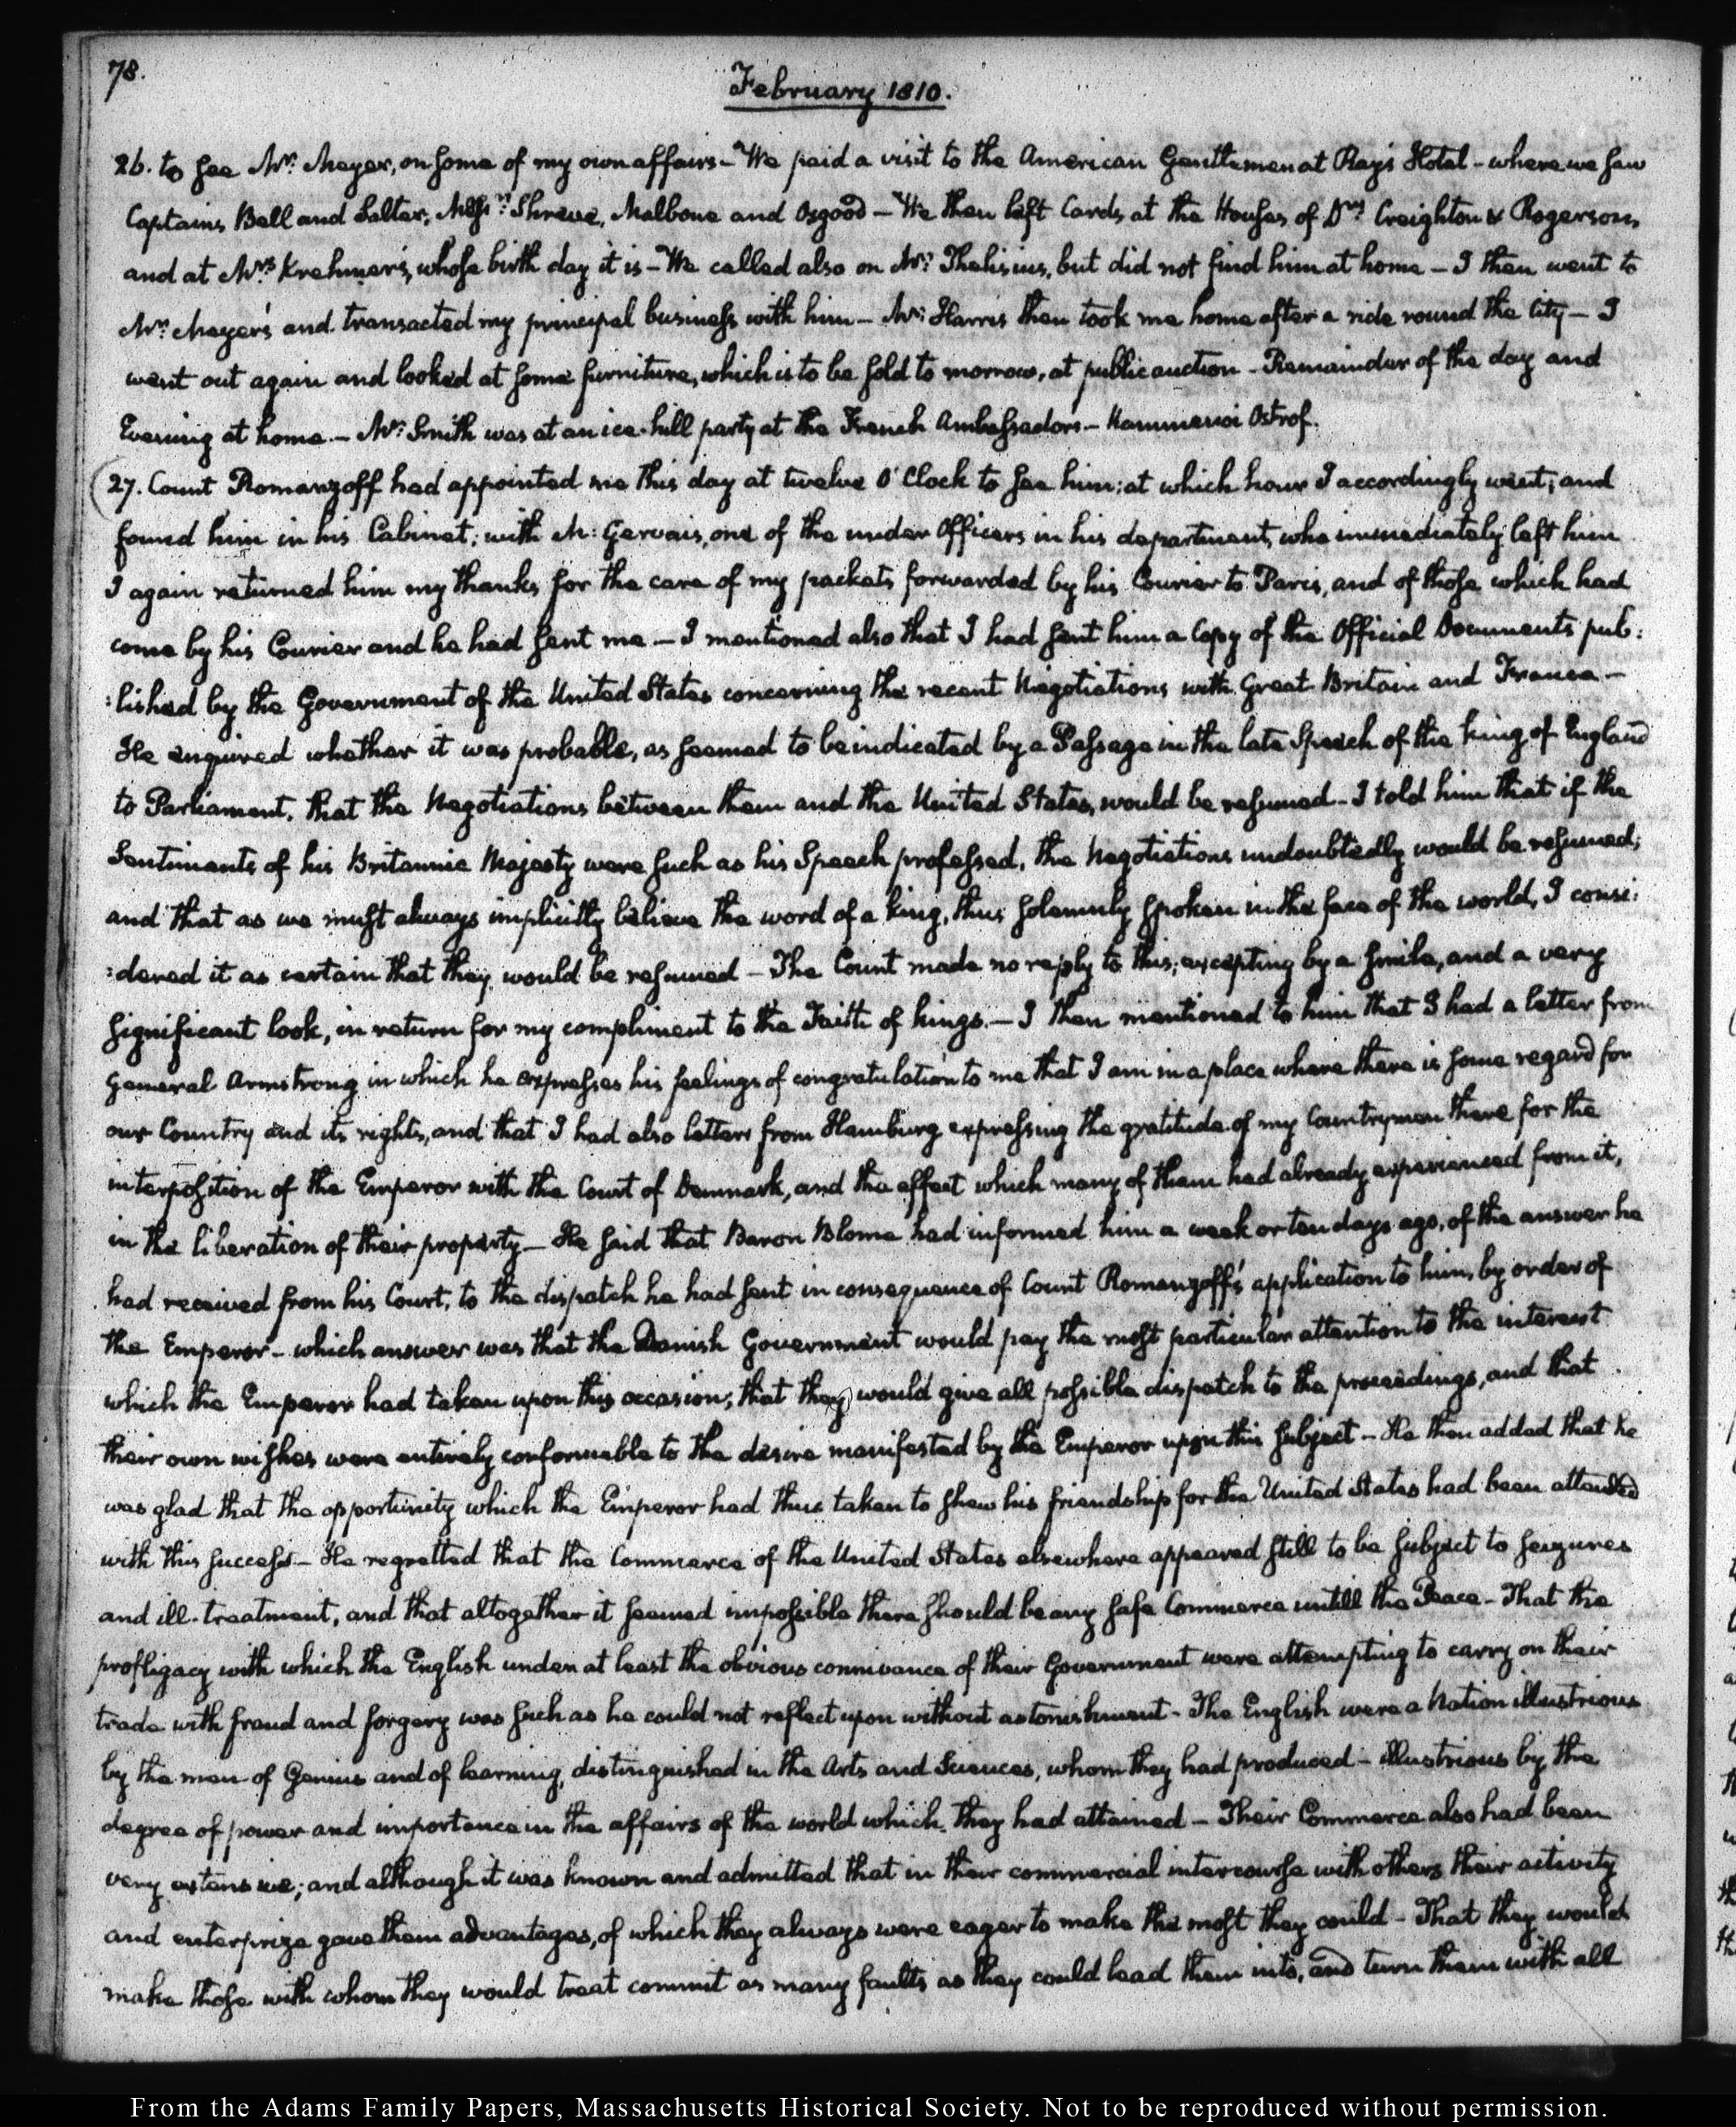 78.
February 1810.
26. to see Mr. Meyer, on some of my own affairs - We paid a visit to the American Gentlemen at Ray's Hotel - where we saw
Captains Bell and Salter, Messrs. Shreve, Malbone and Osgood - We then left Cards at the Houses of Drs. Creighton & Rogerson,
and at Mrs. Krehmer's, whose birth day it is - We called also on Mr. but did not find him at home - I then went to
Mr. Meyer's and transacted my principal business with him - Mr. Harris then took me home after a ride round the City - I
went out again and looked at some furniture, which is to be sold to morrow, at public auction - Remainder of the day and
Evening at home. - Mr. Smith was at an ice-hill party at the French Ambassadors - Kammenoi Ostrof.
27. Count Romanzoff had appointed me this day at twelve O'Clock to see him; at which hour I accordingly went; and
found him in his Cabinet; with M: Gervais, one of the under Officers in his department, who immediately left him
I again returned him my thanks for the care of my packets forwarded by his Courier to Paris, and of those which had
come by his Courier and he had sent me - I mentioned also that I had sent him a Copy of the Official Documents pub:
:lished by the Government of the United States concerning the recent Negotiations with Great Britain and France -
He enquired whether it was probable, as seemed to be indicated by a Passage in the late Speech of the king of England
to Parliament, that the Negotiations between them and the United States, would be resumed - I told him that if the
Sentiments of his Britannic Majesty were such as his Speech professed, the Negotiations undoubtedly would be resumed;
and that as we must always implicitly believe the word of a king, thus solemnly spoken in the face of the world, I consi:
:dered it as certain that they would be resumed - The Count made no reply to this; excepting by a smile, and a very
significant look, in return for my compliment to the Faith of kings. - I then mentioned to him that I had a letter from
General Armstrong in which he expresses his feelings of congratulation to me that I am in a place where there is some regard for
our Country and its rights, and that I had also letters from Hamburg expressing the gratitude of my Countrymen there for the
interposition of the Emperor with the Court of Denmark, and the effect which many of them had already experienced from it,
in the liberation of their property - He said that Baron Blome had informed him a week or ten days ago, of the answer he
had received from his Court, to the dispatch he had sent in consequence of Count Romanzoff's application to him, by order of
the Emperor - which answer was that the Danish Government would pay the most particular attention to the interest
which the Emperor had taken upon this occasion; that they would give all possible dispatch to the proceedings, and that
their own wishes were entirely conformable to the desire manifested by the Emperor upon this subject - He then added that he
was glad that the opportunity which the Emperor had thus taken to shew his friendship for the United States had been attended
with this success - He regretted that the Commerce of the United States elsewhere appeared still to be subject to seizures
and ill-treatment, and that altogether it seemed impossible there should be any safe Commerce untill the Peace - That the
profligacy with which the English under at least the obvious connivance of their Government were attempting to carry on their
trade with fraud and forgery was such as he could not reflect upon without astonishment - The English were a Nation illustrious
by the men of Genius and of learning, distinguished in the Arts and Sciences, whom they had produced - illustrious by the
degree of power and importance in the affairs of the world which they had attained - Their Commerce also had been
very extensive; and although it was known and admitted that in their commercial intercourse with others their activity
and enterprize gave them advantages, of which they always were eager to make the most they could - That they would
make those with whom they would treat commit as many faults as they could lead them into, and turn them with all
From the Adams Family Papers, Massachusetts Historical Society. Not to be reproduced without permission.